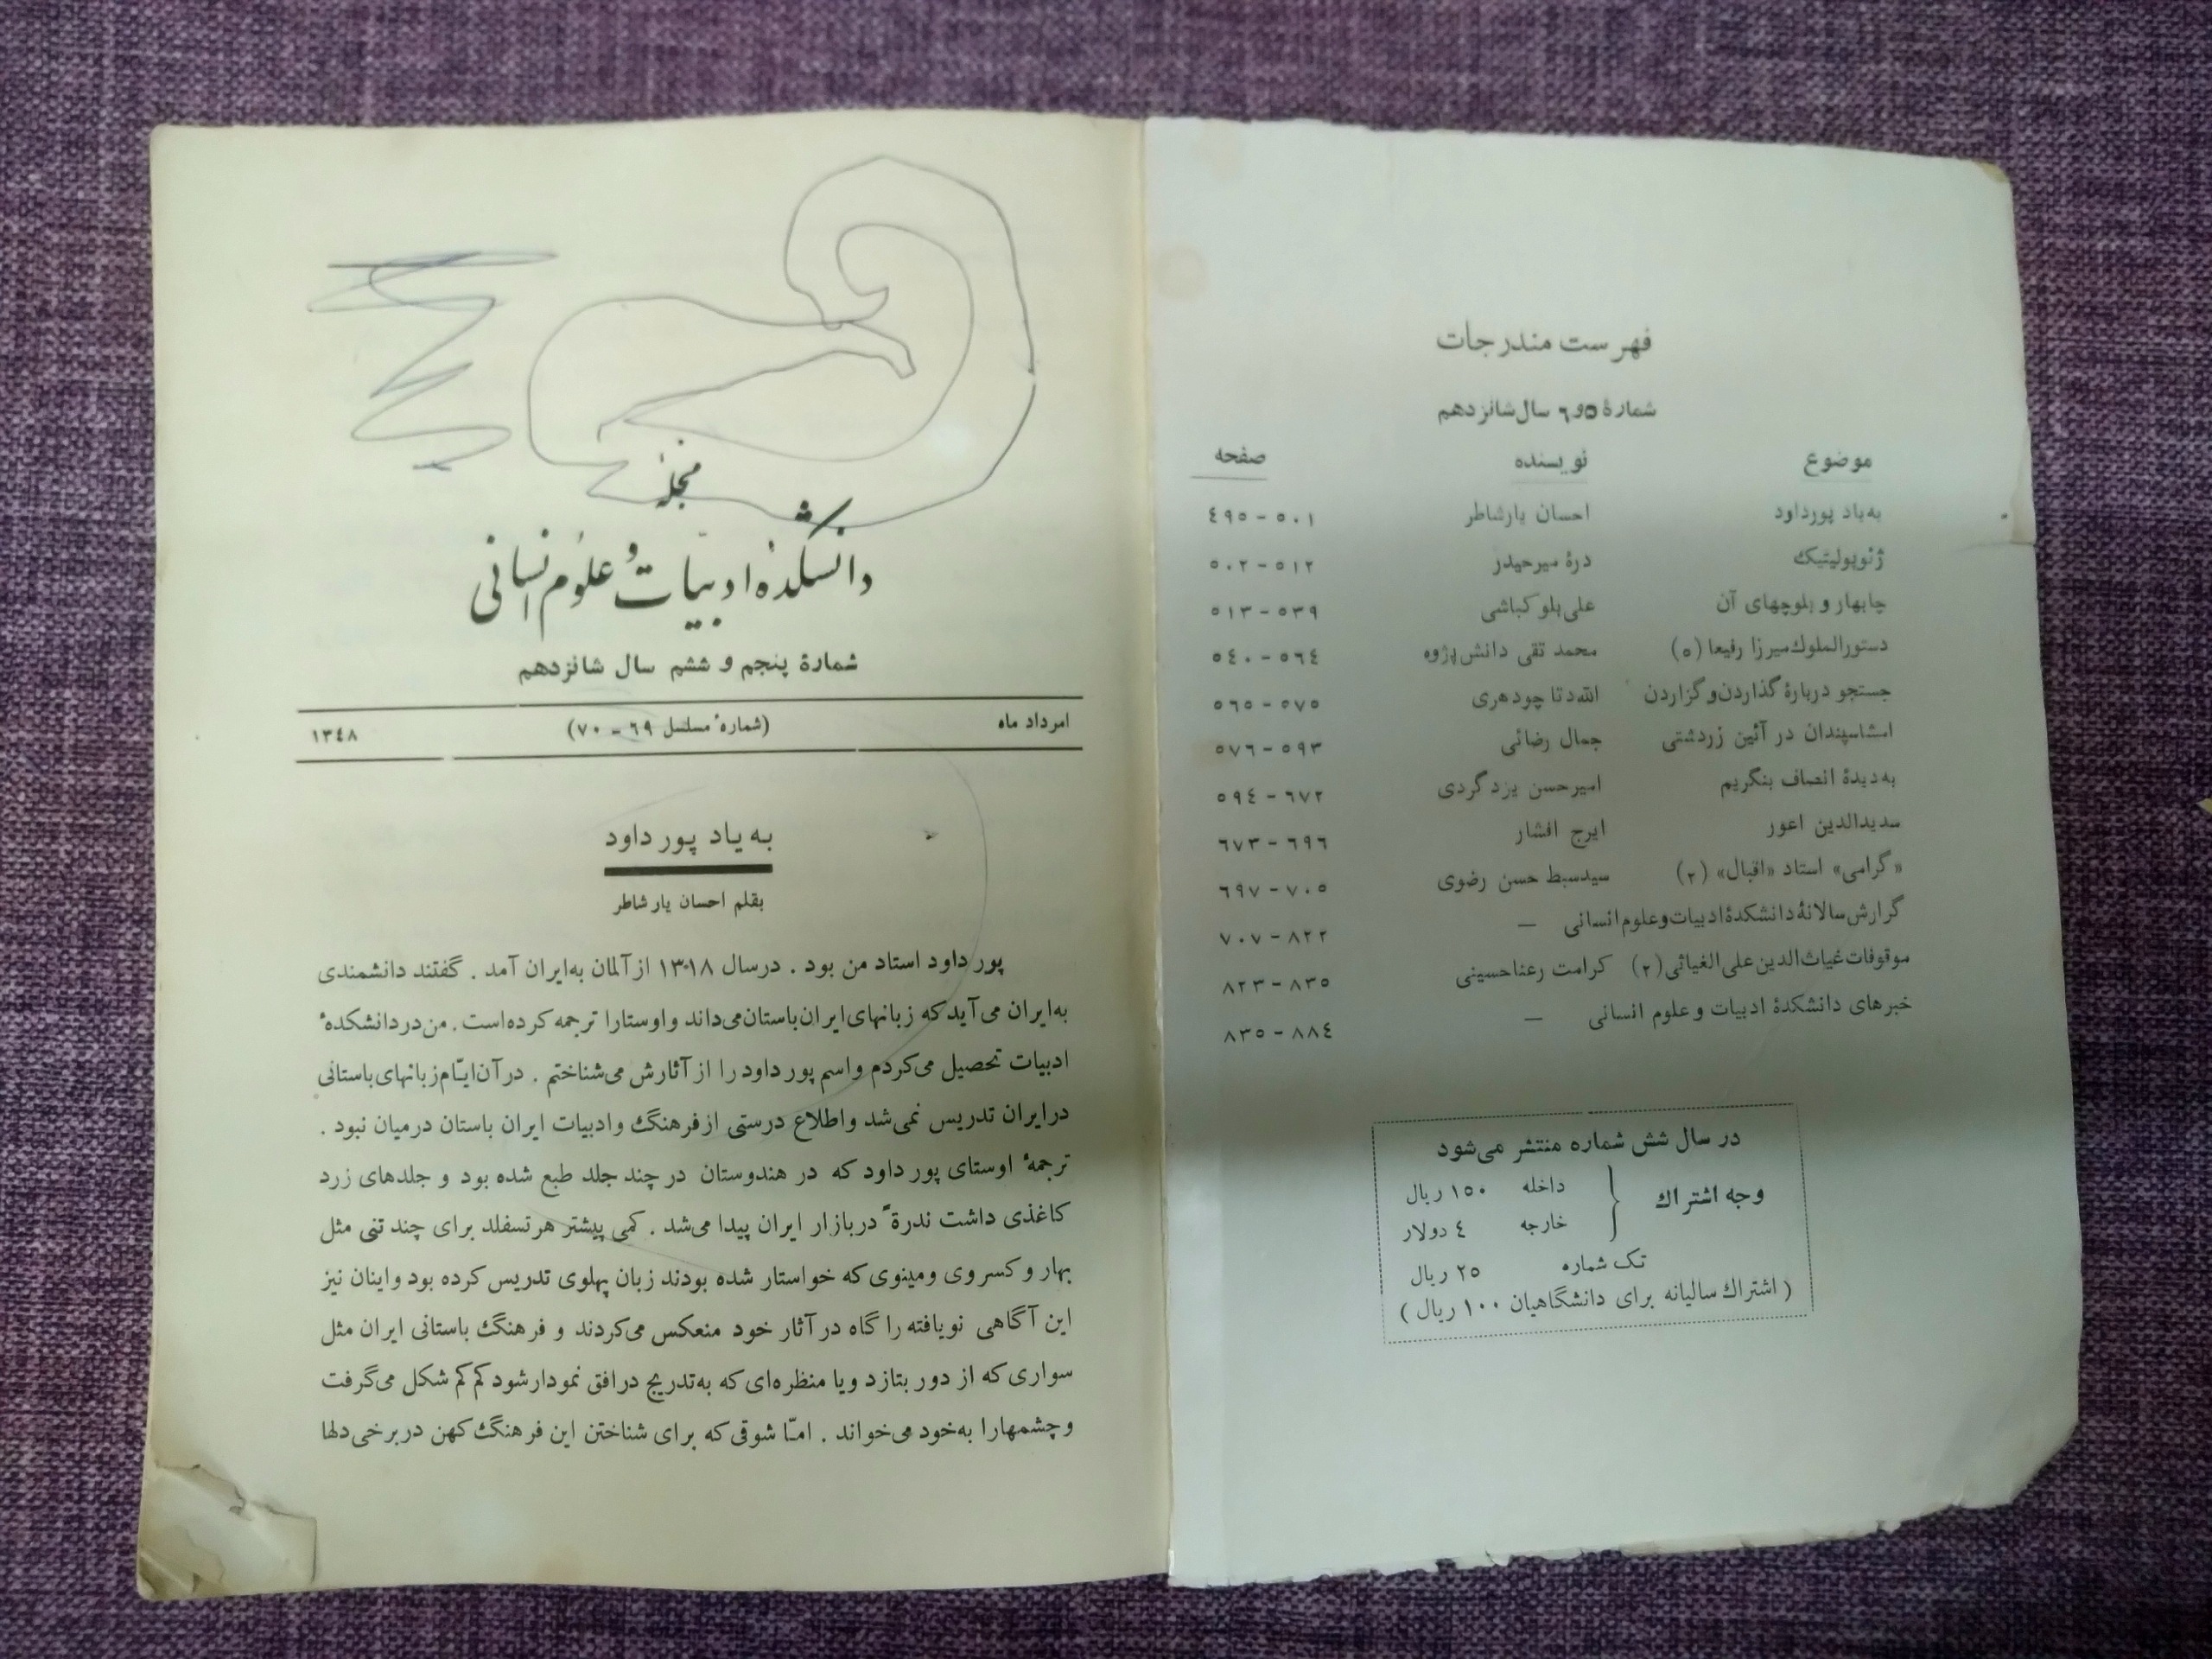 فهرست مندرجات
شمارهٔ ۵و۶ سال شانزدهم
موضوع نویسنده صفحه
به‌یاد پورداود احسان یارشاطر ٤٩٥ - ٥٠١
ژئوپولیتیک درهٔ میرحیدر ٥٠٢ - ٥١٢
چابهار و بلوچهای آن علی بلوکباشی ٥١٣ - ٥٣٩
دستورالملوك میرزا رفیعا (٥) محمد تقی دانش‌پژوه ٥٤٠ - ٥٦٤
جستجو دربارهٔ گذاردن و گزاردن الله‌دتا چودهری ٥٦٥ - ٥٧٥
امشاسپندان در آئین زردشتی جمال رضائی ٥٧٦ - ٥٩٣
به‌دیدهٔ انصاف بنگریم امیرحسن یزدگردی ٥٩٤ - ٦٧٢
سدیدالدین اعور ایرج افشار ٦٧٣ - ٦٩٦
«گرامی» استاد «اقبال» (٢) سیدسبط حسن رضوی ٦٩٧ - ٧٠٥
گزارش سالانهٔ دانشکدهٔ ادبیات و علوم انسانی — ٧٠٧ - ٨٢٢
موقوفات غیاث‌الدین علی الغیاثی (٢) کرامت رعناحسینی ٨٢٣ - ٨٣٥
خبرهای دانشکدهٔ ادبیات و علوم انسانی — ٨٣٥ - ٨٨٤
در سال شش شماره منتشر می‌شود
وجه اشتراك { داخله ١٥٠ ریال
خارجه ٤ دولار
تك شماره ٢٥ ریال
( اشتراك سالیانه برای دانشگاهیان ١٠٠ ریال )
مجله
دانشکده ادبیات و علوم انسانی
شمارهٔ پنجم و ششم سال شانزدهم
امرداد ماه (شمارهٔ مسلسل ٦٩ - ٧٠) ١٣٤٨
به یاد پور داود
بقلم احسان یارشاطر
پور داود استاد من بود . درسال ١٣٠١٨ از آلمان به‌ایران آمد . گفتند دانشمندی
به‌ایران می‌آید که زبانهای ایران باستان می‌داند و اوستارا ترجمه کرده‌است . من دردانشکدهٔ
ادبیات تحصیل می‌کردم و اسم پور داود را از آثارش می‌شناختم . در آن ایّام زبانهای باستانی
درایران تدریس نمی‌شد و اطلاع درستی از فرهنگ و ادبیات ایران باستان درمیان نبود .
ترجمهٔ اوستای پور داود که در هندوستان در چند جلد طبع شده بود و جلدهای زرد
کاغذی داشت ندرةً دربازار ایران پیدا می‌شد . کمی پیشتر هرتسفلد برای چند تنی مثل
بهار و کسروی و مینوی که خواستار شده بودند زبان پهلوی تدریس کرده بود و اینان نیز
این آگاهی نویافته را گاه در آثار خود منعکس می‌کردند و فرهنگ باستانی ایران مثل
سواری که از دور بتازد ویا منظره‌ای که به‌تدریج درافق نمودار شود کم کم شکل می‌گرفت
و چشمهارا به‌خود می‌خواند . امّا شوقی که برای شناختن این فرهنگ کهن دربرخی دلها